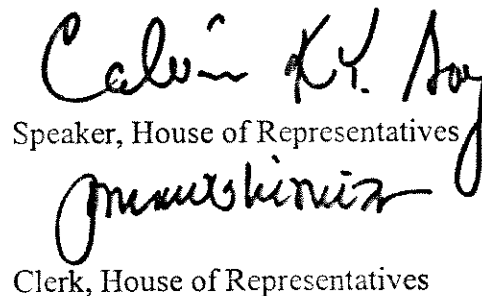 Calvin K.Y. Say
Speaker, House of Representatives
Clerk, House of Representatives